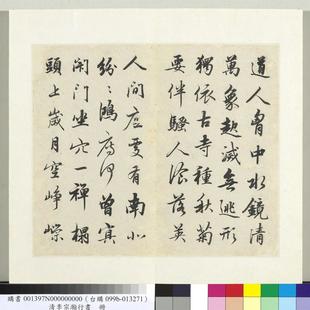 道人胷中水鏡清
萬象起滅無逃形
獨依古寺種秋菊
要伴騷人飡落英
人間底處有南北
紛〻鴻雁何曾冥
閉門坐穴一禪榻
頭上歲月空崢嶸
購書 001397N000000000 (台購 099b-013271)
清李宗瀚行書 冊